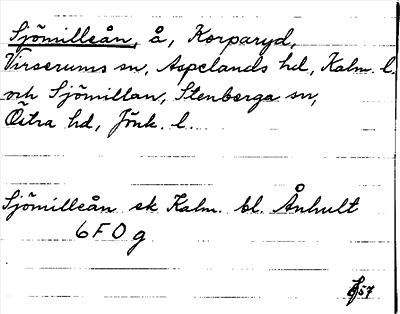 Sjömilleån, å, Korparyd,
Virserums sn, Aspelands hd, Kalm. l.
och Sjömillan, Stenberga sn,
Östra hd, Jönk. l.
Sjömilleån ek Kalm. bl. Ånhult
6F0g
57